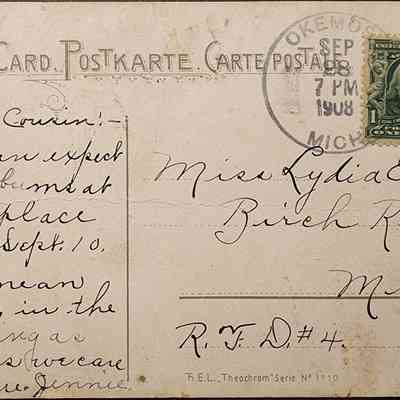 CARD. POSTKARTE. CARTE POSTAL
OKEMOS
SEP
28
7 PM
1908
MICH
1
Cousin!-
an expect
bums at
place
Sept. 10.
mean
in the
gas
we care
Jennie.
Miss Lydia E
Birch R
M
R. F. D. # 4.
H.E.L. "Theochrom" Serie No 1110